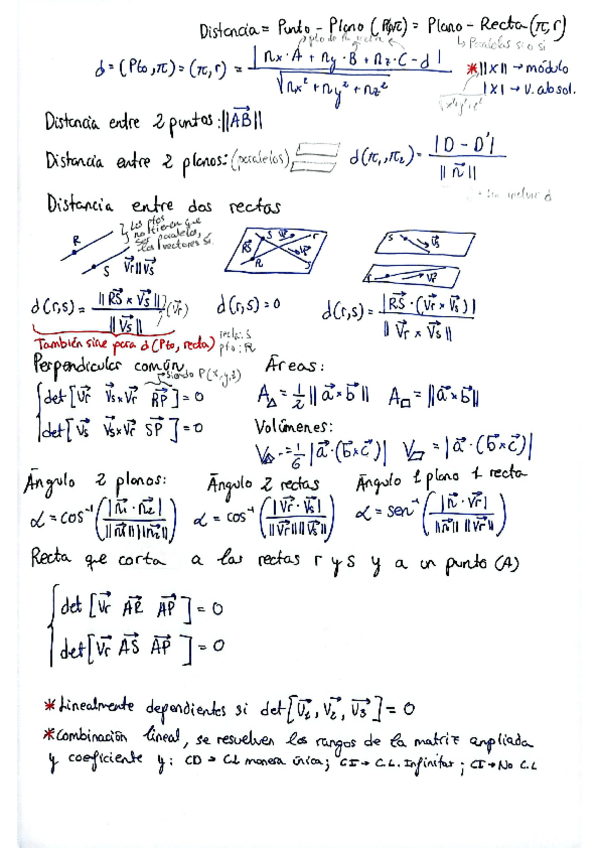 Distancia = Punto - Plano (P,π) = Plano - Recta (π,r)
↳ Paralelas si o si
d = (Pto,π) = (π,r) = |nx·A + ny·B + nz·C - d| / √(nx² + ny² + nz²)
* ||X|| → módulo
|X| → V. absol.
Distancia entre 2 puntos: ||AB||
Distancia entre 2 planos: (paralelos) d(π₁,π₂) = |D - D'| / ||n||
Distancia entre dos rectas
Los ptos no tienen que ser paralelos, los vectores sí.
R S Vr || Vs
RS S Vs r R Vr s
S Vs
r Vr
d(r,s) = ||RS × Vs|| / ||Vs|| → (Vr) d(r,s) = 0 d(r,s) = |RS · (Vr × Vs)| / ||Vr × Vs||
También sirve para d(Pto, recta) recta: S pto: R
Perpendicular común
→ Siendo P(x,y,z)
det [Vr Vs×Vr RP] = 0
det [Vs Vs×Vr SP] = 0
Áreas:
A△ = 1/2 ||a × b|| A▱ = ||a × b||
Volúmenes:
V = 1/6 |a · (b × c)| V = |a · (b × c)|
Ángulo 2 planos: Ángulo 2 rectas Ángulo 1 plano 1 recta
α = cos⁻¹ (|n1 · n2| / ||n1|| ||n2||) α = cos⁻¹ (|Vr · Vs| / ||Vr|| ||Vs||) α = sen⁻¹ (|n · Vr| / ||n|| ||Vr||)
Recta que corta a las rectas r y s y a un punto (A)
det [Vr AR AP] = 0
det [Vr AS AP] = 0
* Linealmente dependientes si det [V1, V2, V3] = 0
* Combinación lineal, se resuelven los rangos de la matriz ampliada
y coeficiente y: CD → CL manera única; CI → C.L. Infinitas; CI → No C.L